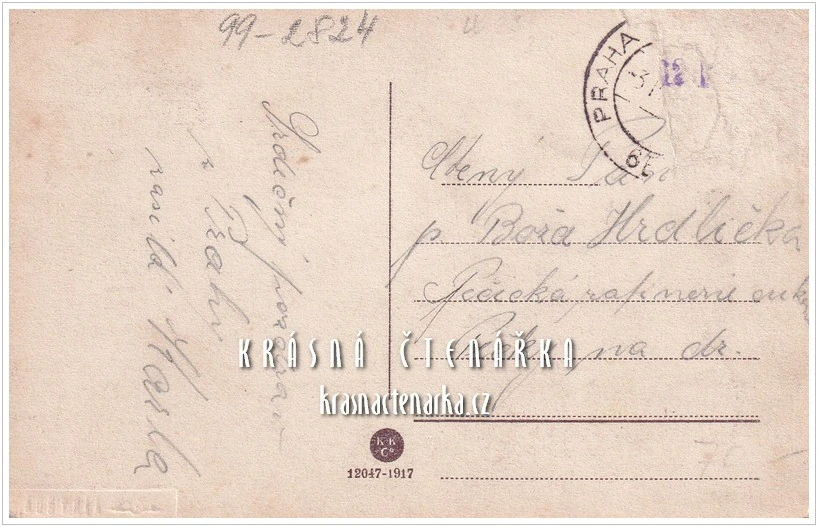 99-2824
PRAHA
Srdečný pozdrav
z Prahy
zasílá Karla
Ctěný Pán
p. Bořa Hrdlička
Pečická rafinerie cukru
na dr.
KRÁSNÁ ČTENÁŘKA
krasnactenarka.cz
K K
Co
12047-1917